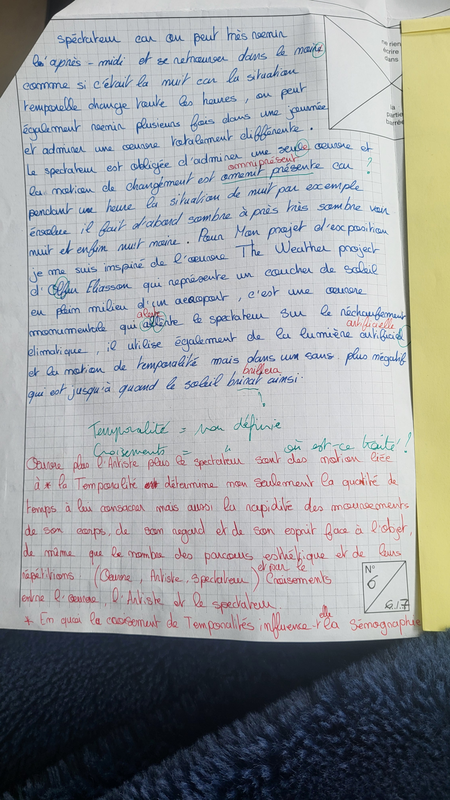 spéctateur car on peut très revenir
l'après-midi et se retrouver dans le noire
comme si c'était la nuit car la situation
temporelle change toute les heures, on peut
également revenir plusieurs fois dans une journée
et admirer une œuvre totalement différente.
Le spectateur est obligée d'admirer une seule œuvre et
omniprésent ?
la notion de changement est omenit présente car
pendant une heure la situation de nuit par exemple
il fait d'abord sombre à près très sombre voir
nuit et enfin nuit noire. Pour Mon projet d'exposition
je me suis inspiré de l'œuvre The Weather project
d'Olfur Eliasson qui représente un coucher de soleil
en plein milieu d'un aeroport, c'est une œuvre
alerte
monumentale qui le spectateur sur le réchauffement
artificielle
climatique, il utilise également de la lumière artificiele
et la notion de temporalité mais dans un sans plus négatif
brillera
qui est jusqu'à quand le soleil ainsi.
?
Temporalité = non définie
Croisements = " où est-ce traité ?
Œuvre plus l'Artiste plus le spectateur sont des notion liée
à * la Temporalité détermine non seulement la quantité de
temps à leu consacrer mais aussi la rapidité des mouvements
de son corps, de son regard et de son esprit face à l'objet,
de même que le nombre des parcours esthétique et de leurs
et par le
répétitions (Œuvre, Artiste, Spectateur) Croisements
entre l'œuvre, l'Artiste et le spectateur.
* En quoi la croisement de Temporalités influence-t
la Sémographie
ne rien
écrire
dans
la
partie
barrée
N°
6